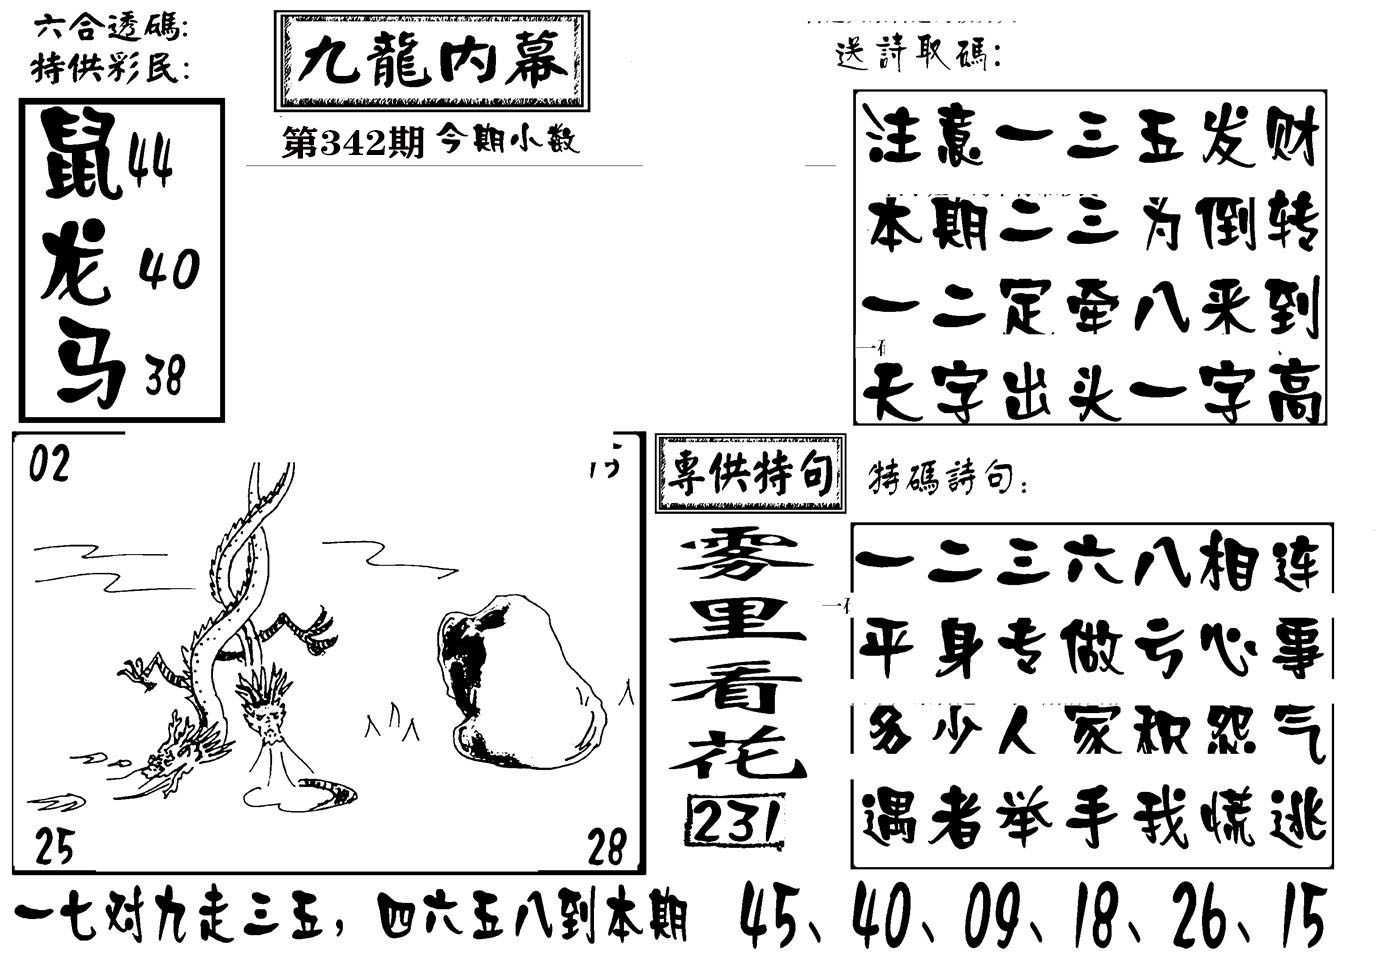 六合透碼:
特供彩民:
鼠44
龙40
马38
九龍内幕
第342期 今期小数
送詩取碼:
注意一三五发财
本期二三为倒转
一二定牵八来到
天字出头一字高
02
25
28
專供特句
雾里看花
231
特碼詩句:
一二三六八相连
平身专做亏心事
多少人家积怨气
遇者举手我慌逃
一七对九走三五，四六五八到本期
45、40、09、18、26、15